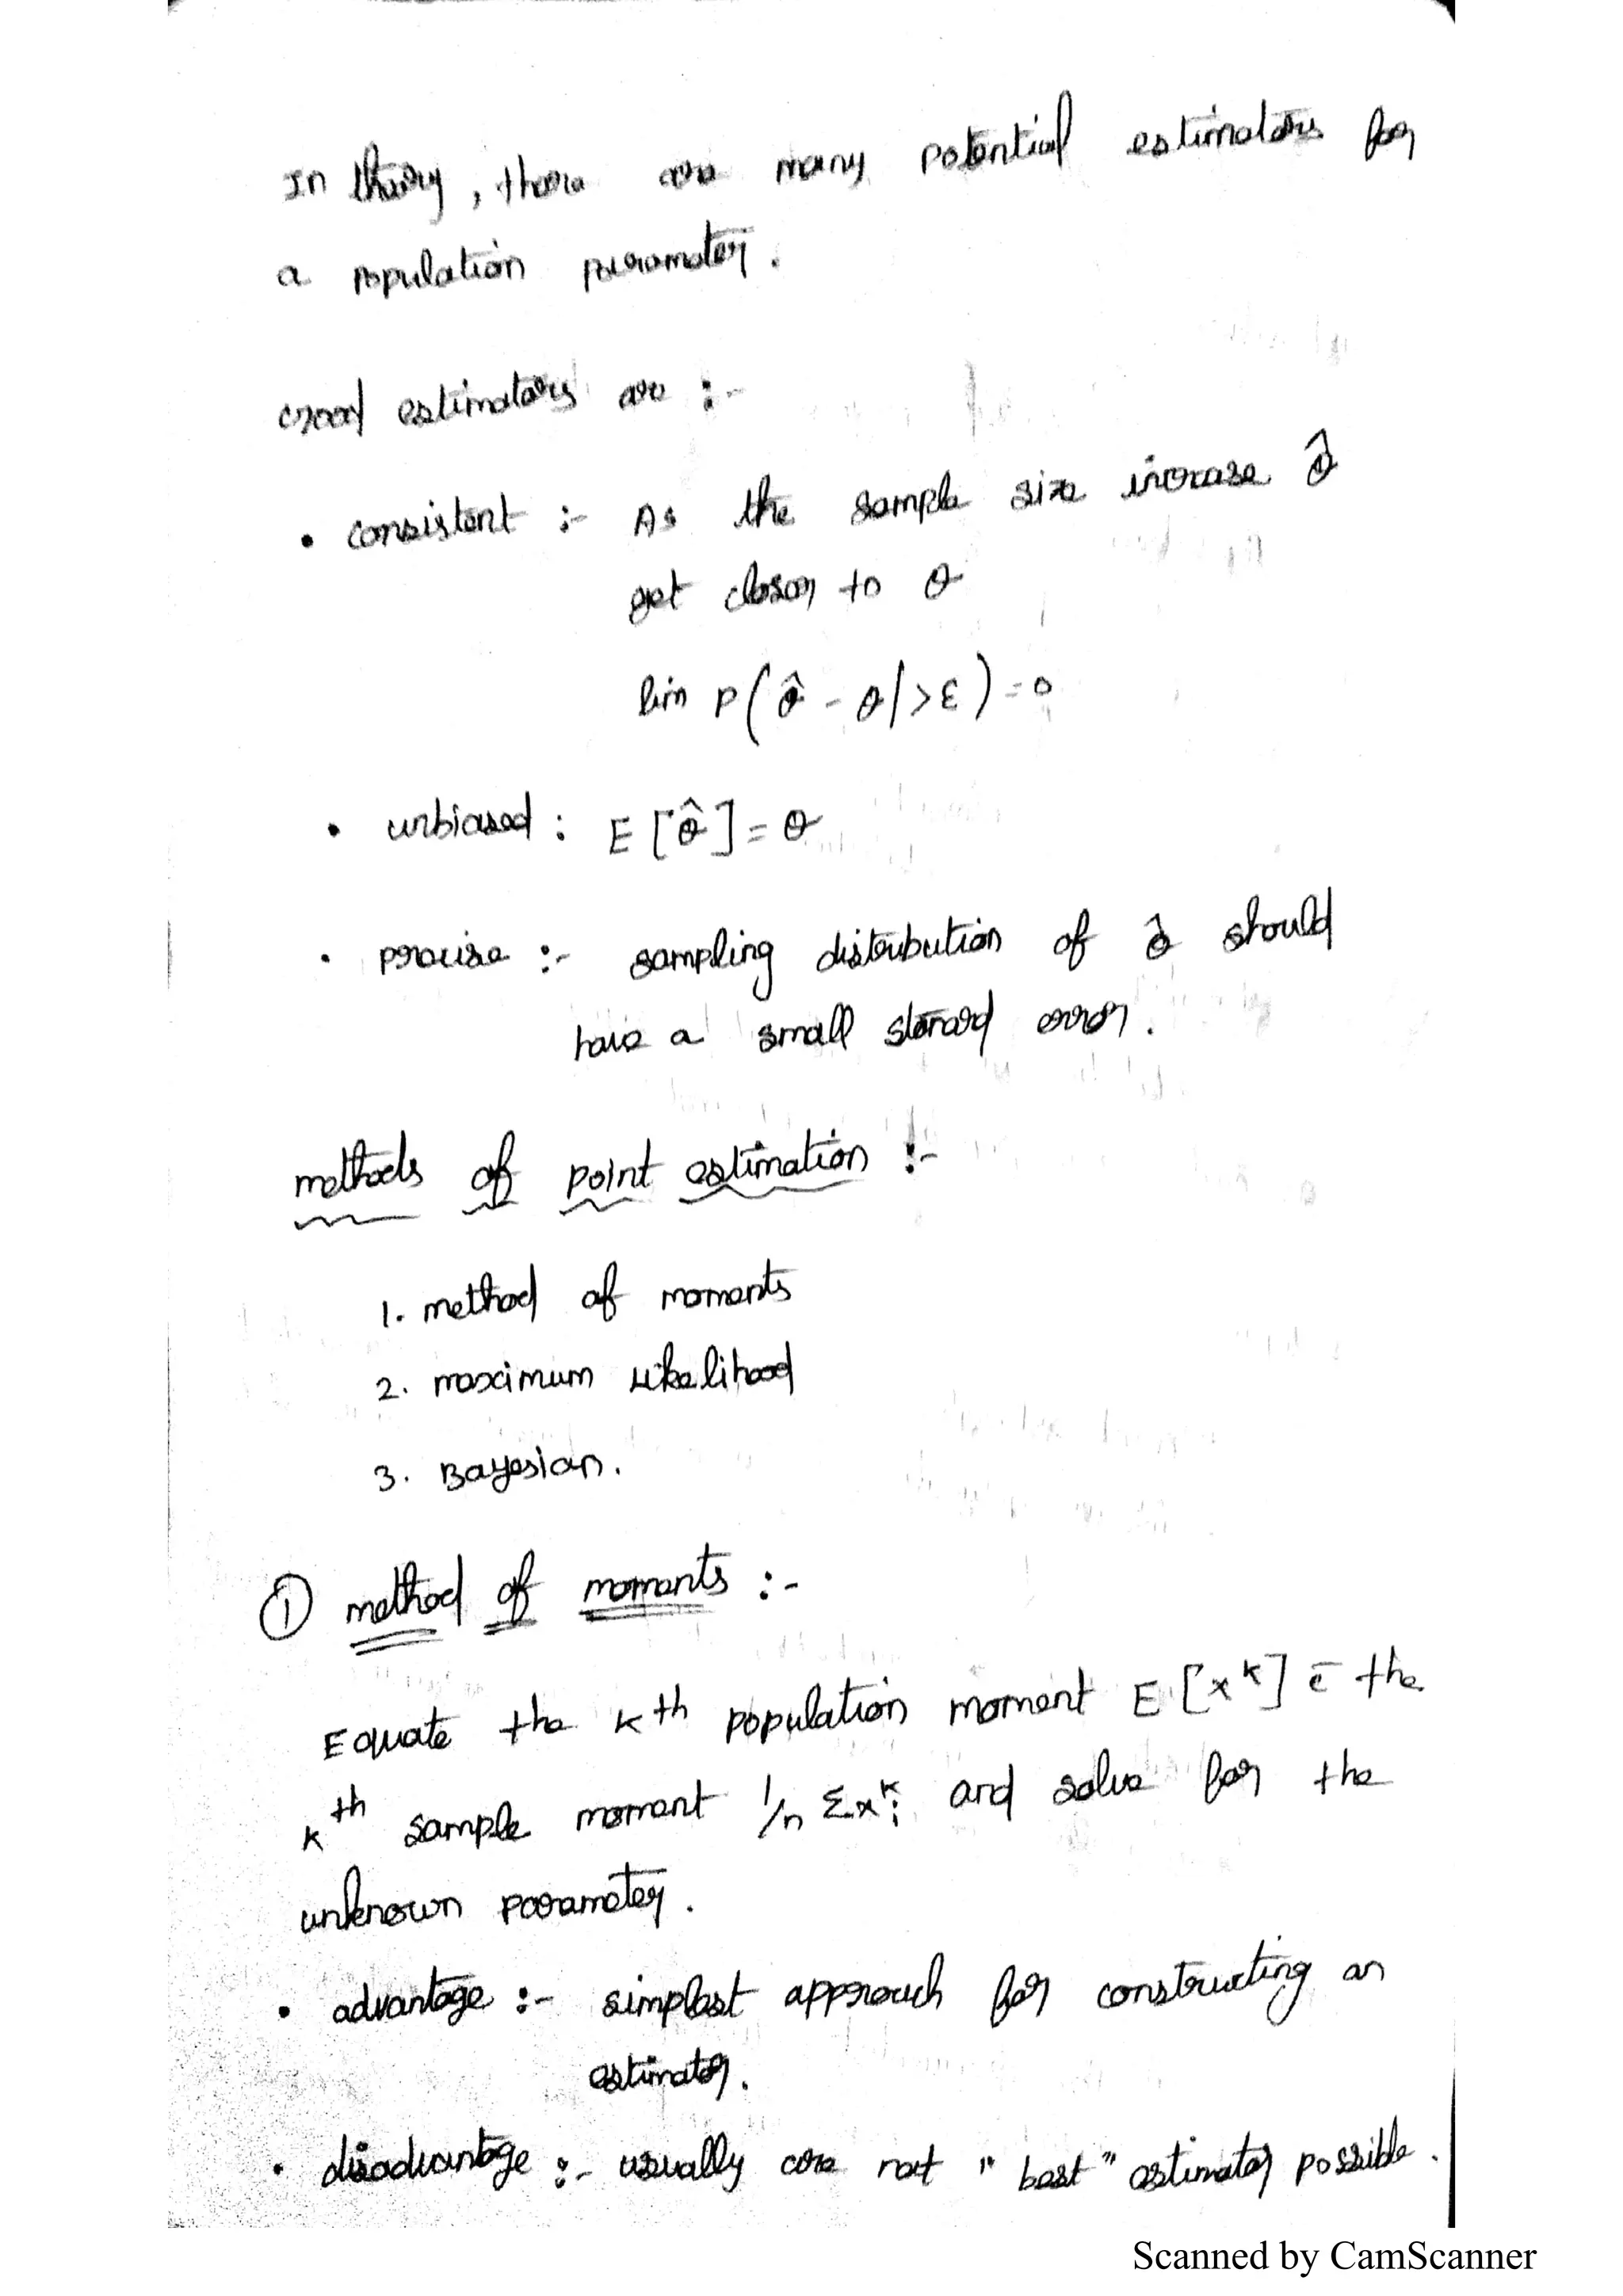 In theory, there are many potential estimators for
a population parameter.
Good estimators are :-
• consistent :- As the sample size increase θ̂
get closer to θ
lim P(θ̂ - θ|>ε)=0
• unbiased : E[θ̂]=θ
• precise :- sampling distribution of θ̂ should
have a small standard error.
methods of point estimation :-
1. method of moments
2. maximum likelihood
3. Bayesian.
① method of moments :-
Equate the kth population moment E[x^k] c̄ the
kth sample moment 1/n Σx^k_i and solve for the
unknown parameter.
• advantage :- simplest approach for constructing an
estimator.
• disadvantage :- usually are not "best" estimator possible.
Scanned by CamScanner